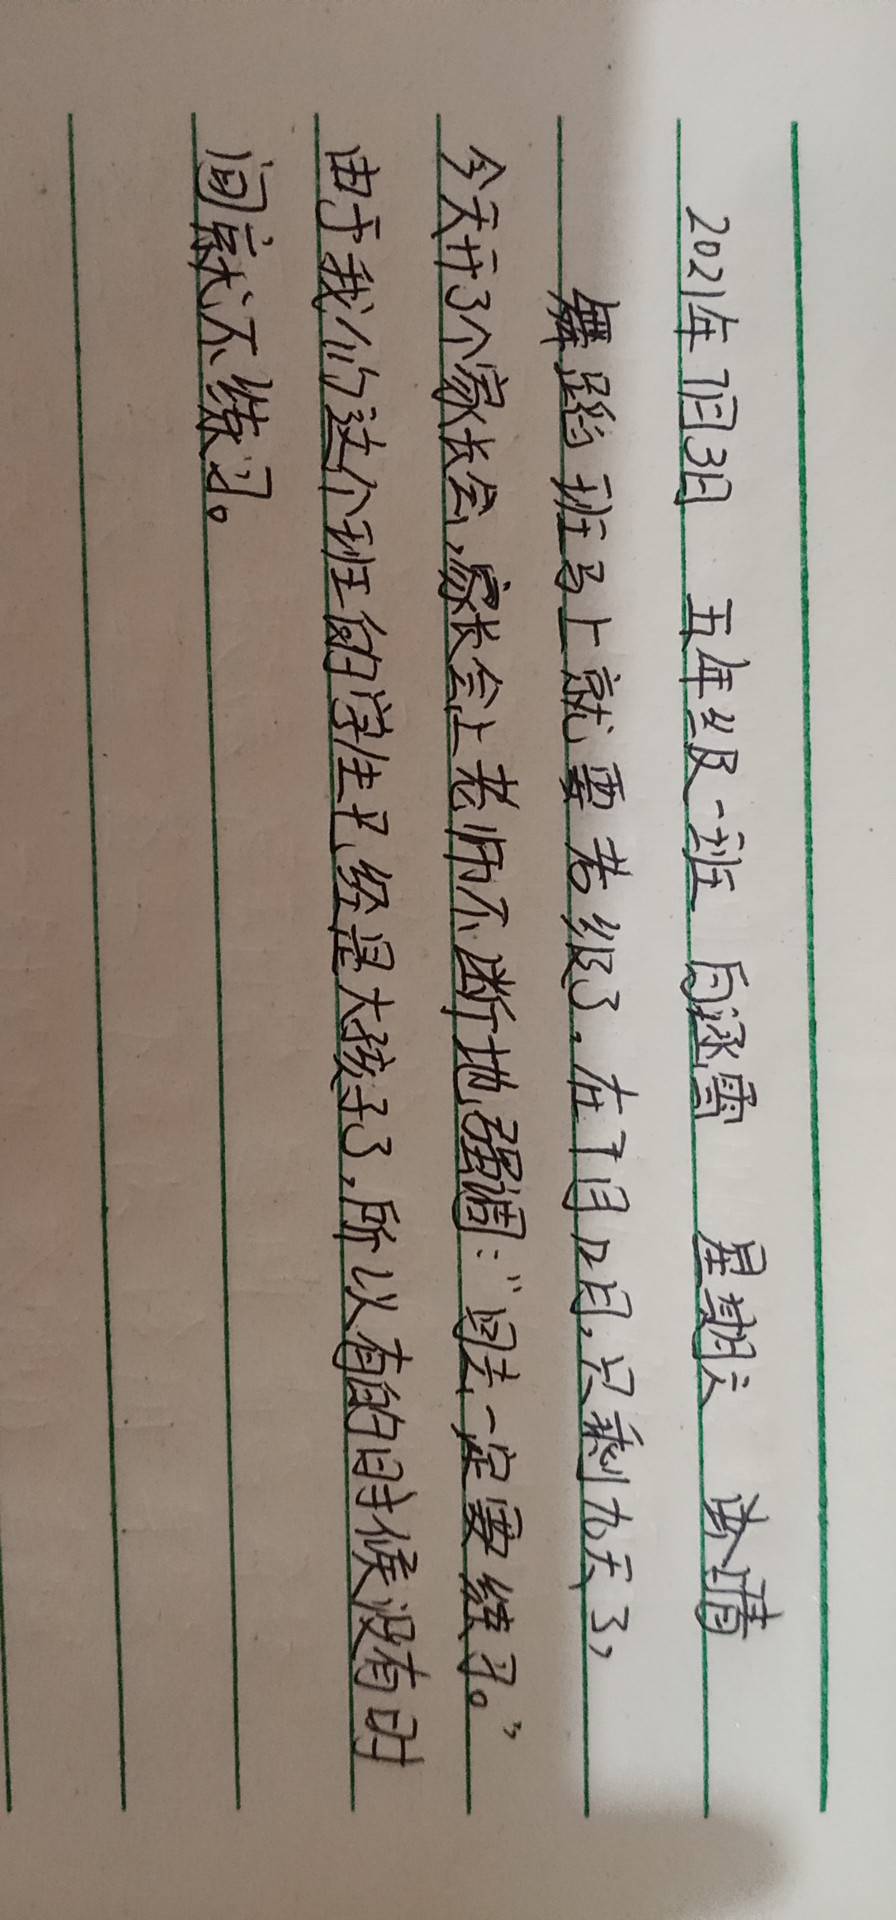 2021年7月3日 五年级一班 白逐雪 星期六 晴
舞蹈班马上就要考级了，在7月12日，只剩九天了，
今天开了个家长会，家长会上老师不断地强调：“回去一定要练习。”
由于我们这个班的学生已经是大孩子了，所以有的时候没有时
间就不练习。